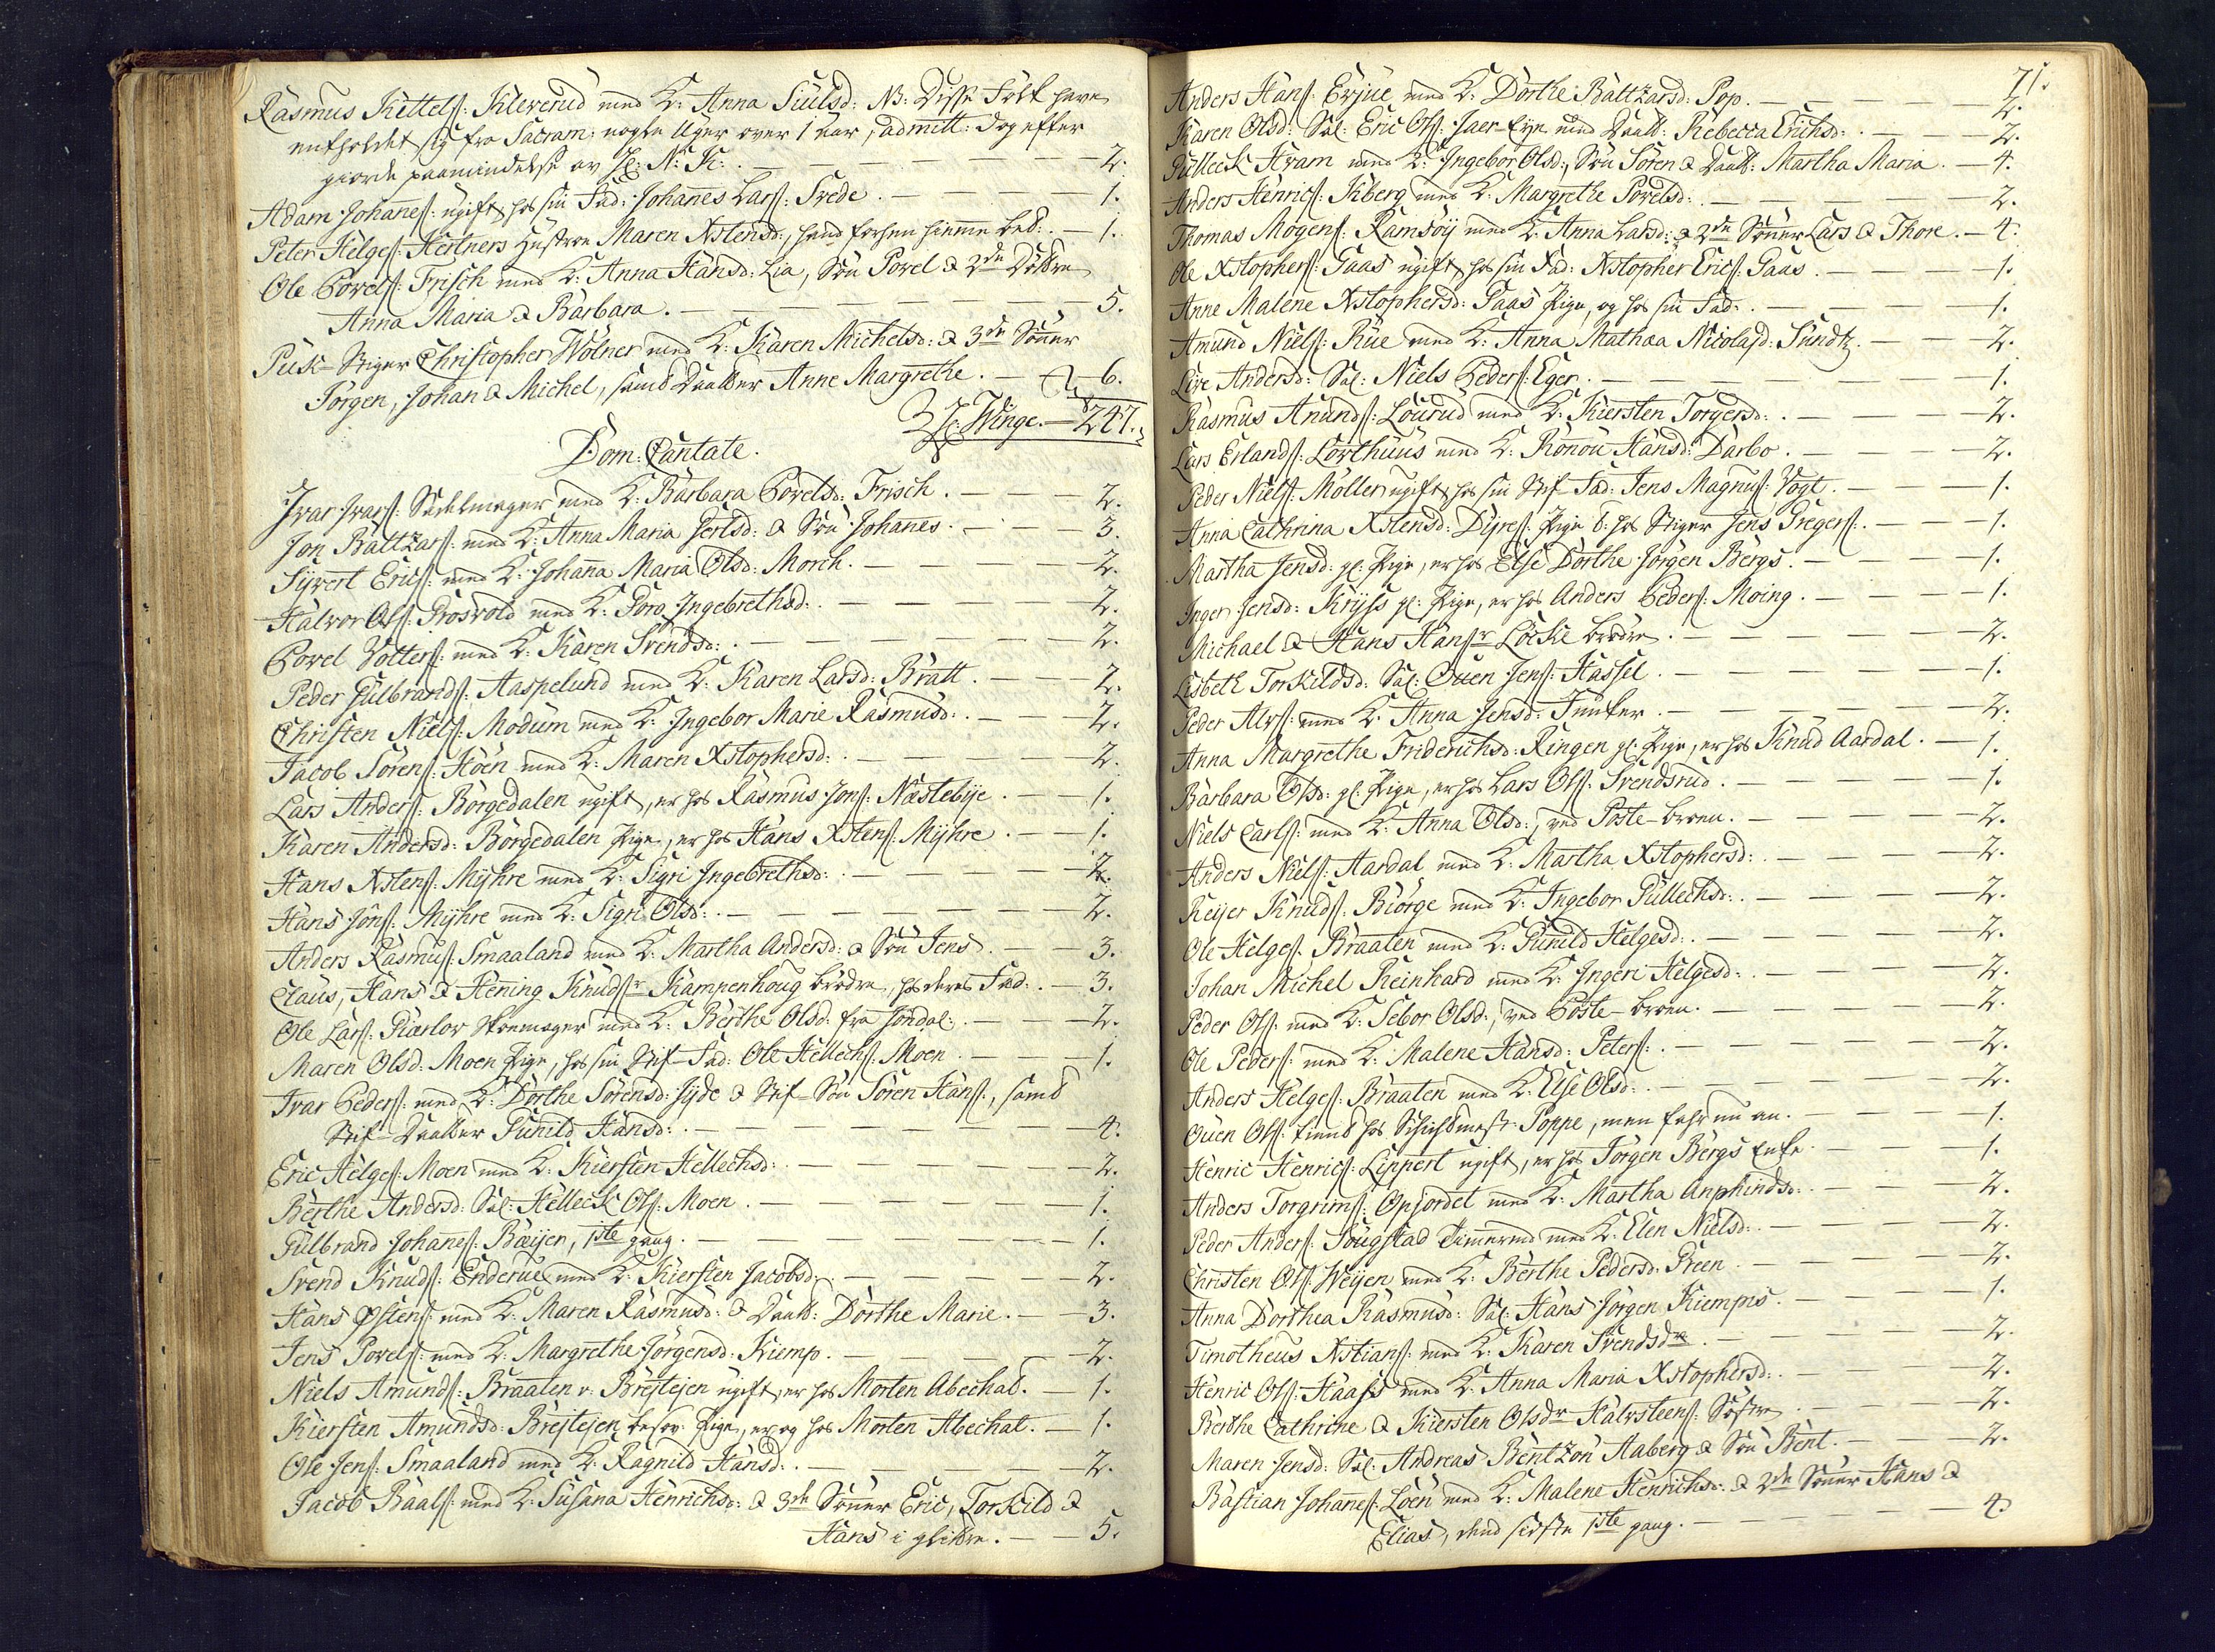 Rasmus Kittels: Kleverud med K: Anna Siulsd: NB: Disse Folk have
entholdet sig fra Sacram: nogle Uger over 1 Aar, admitt: dog efter
giorde paamindelse av Hr: N: K: 2.
Adam Johanes: ugift, hos sin Fad: Johanes Lars: Svede. 1.
Peter Helges: Hertners Hustroe Maren Xstensd:, 1.
Ole Povels: Frisch med K: Anna Hansd: Lia, Søn Povel & 2de Døttre
Anna Maria & Barbara. 5.
Puk-Stiger Christopher Wölner med K: Karen Michelsd: & 3de Sønner
Jørgen, Johan & Michel, samt Daatter Anne Margrethe. 6.
Hr: Winge. 247.
Dom: Cantate.
Ivar Ivars: Sadelmager med K: Barbara Povelsd: Frisch. 2.
Jon Baltzars: med K: Anna Maria Jerlsd: & Søn Johanes. 3.
Syvert Erics: med K: Johanna Maria Olsd: Morch. 2.
Halvor Ols: Prosvold med K: Goro Ingebrethsd: 2.
Povel Volters: med K: Karen Svendsd: 2.
Peder Gulbrands: Aaspelund med K: Karen Larsd: Bratt. 2.
Christen Niels: Modum med K: Ingebor Marie Rasmusd: 2.
Jacob Sörens: Höen med K: Maren Xstophersd: 2.
Lars Anders: Börgedalen ugift, er hos Rasmus Jons: Næstebye. 1.
Karen Andersd: Börgedalen Pige, er hos Hans Xstens: Myhre. 1.
Hans Xstens: Myhre med K: Sigri Ingebrethsd: 2.
Hans Jöns: Myhre med K: Sigri Olsd: 2.
Anders Rasmus: Smaaland med K: Martha Andersd: & Søn Jens. 3.
Claus, Hans & Hening Knudsr Kampenhoug brødre, hos deres Fad: 3.
Ole Lars: Kierlov Skoemager med K: Berthe Olsd: fra Jondal. 2.
Maren Olsd: Moen Pige, hos sin Stif-Fad: Ole Hellechs: Moen. 1.
Ivar Peders: med K: Dorthe Sörensd: Jyde & Stif-Søn Sören Hans:, samt
Stif-Daatter Gunild Hansd: 4.
Eric Helges: Moen med K: Kiersten Hellechsd: 2.
Berthe Andersd: Sal: Helleck Ols: Moen. 1.
Gulbrand Johanes: Bæyer, 1ste gang. 1.
Svend Knuds: Enderue med K: Kiersten Jacobsd: 2.
Hans Østens: med K: Maren Rasmusd: & Daatt: Dorthe Marie. 3.
Jens Povels: med K: Margrethe Jörgensd: Kiemp. 2.
Niels Amunds: Braaten v: Brejtejen ugift, er hos Morten Abechat. 1.
Kiersten Amundsd: Brejtejen besov: Pige, er og hos Morten Abechat. 1.
Ole Jens: Smaaland med K: Ragnild Hansd: 2.
Jacob Baals: med K: Susana Henrichsd: & 3de Sønner Eric, Torkild &
Hans i glitre. 5.
71.
Anders Hans: Erjue med K: Dorthe Baltzarsd: Pop. 2.
Karen Olsd: Sal: Eric Ols: Jaer-Eye med Daatt: Rebecca Erichsd: 2.
Gulleck Hram med K: Ingebor Olsd:, Søn Sören & Daatt: Martha Maria. 4.
Anders Henrics: Kiberg med K: Margrethe Povelsd: 2.
Thomas Mogens: Ramsöy med K: Anna Larsd: & 2de Sønner Lars & Thore. 4.
Ole Xstophers: Gaas ugift, hos sin Fad: Xstopher Erics: Gaas. 1.
Anne Malene Xstophersd: Gaas Pige, og hos sin Fad: 1.
Amund Niels: Rue med K: Anna Mathæa Nicolajd: Sundtz. 2.
Live Andersd: Sal: Niels Peders: Eger. 1.
Rasmus Anunds: Lourud med K: Kiersten Torgersd: 2.
Lars Erlands: Lorthuus med K: Ronou Hansd: Darbo. 2.
Peder Niels: Möller ugift, hos sin Stif-Fad: Jens Magnus: Vogt. 1.
Anna Cathrina Xstensd: Dyres: Pige hos Stiger Jens Gregers: 1.
Martha Jensd: gl: Pige, er hos Else Dorthe Jörgen Bergs. 1.
Inger Jensd: Kryss gl: Pige, er hos Anders Peders: Moing. 1.
Michael & Hans Hansr Locke brødre. 2.
Lisbeth Torkildsd: Sal: Ouen Jens: Hassel. 1.
Peder Alvs: med K: Anna Jensd: Funker. 2.
Anna Margrethe Friderichsd: Ringen gl: Pige, er hos Knud Aardal. 1.
Barbara Olsd: gl: Pige, er hos Lars Ols: Svendsrud. 1.
Niels Carls: med K: Anna Olsd:, ved Poste-broen. 2.
Anders Niels: Aardal med K: Martha Xstophersd: 2.
Reijer Knuds: Biörge med K: Ingebor Gullechsd: 2.
Ole Helges: Braaten med K: Gunild Helgesd: 2.
Johan Michel Reinhard med K: Ingeri Helgesd: 2.
Peder Ols: med K: Sebor Olsd:, ved Poste-broen. 2.
Ole Peders: med K: Malene Hansd: Peters: 2.
Anders Helges: Braaten med K: Else Olsd: 2.
Ouen Ols: tient hos Schichtmest: Poppe, men fahr nu an. 1.
Henric Henrics: Lippert ugift, er hos Jörgen Bergs Enke. 1.
Anders Torgrims: Opjordet med K: Martha Anphindsd: 2.
Peder Anders: Sougstad Timmermd med K: Elen Nielsd: 2.
Christen Ols: Weyen med K: Berthe Pedersd: Green. 2.
Anna Dorthea Rasmusd: Sal: Hans Jörgen Kiemps. 1.
Timotheus Xstians: med K: Karen Svendsdr. 2.
Henric Ols: Haass med K: Anna Maria Xstophersd: 2.
Berthe Cathrine & Kiersten Olsdr Halvsteens: Søstre. 2.
Maren Jensd: Sal: Andreas Bentzon Aaberg & Søn Bent. 2.
Bastian Johanes: Loen med K: Malene Henrichsd: & 2de Sønner Hans &
Elias, dend sidste 1ste gang. 4.